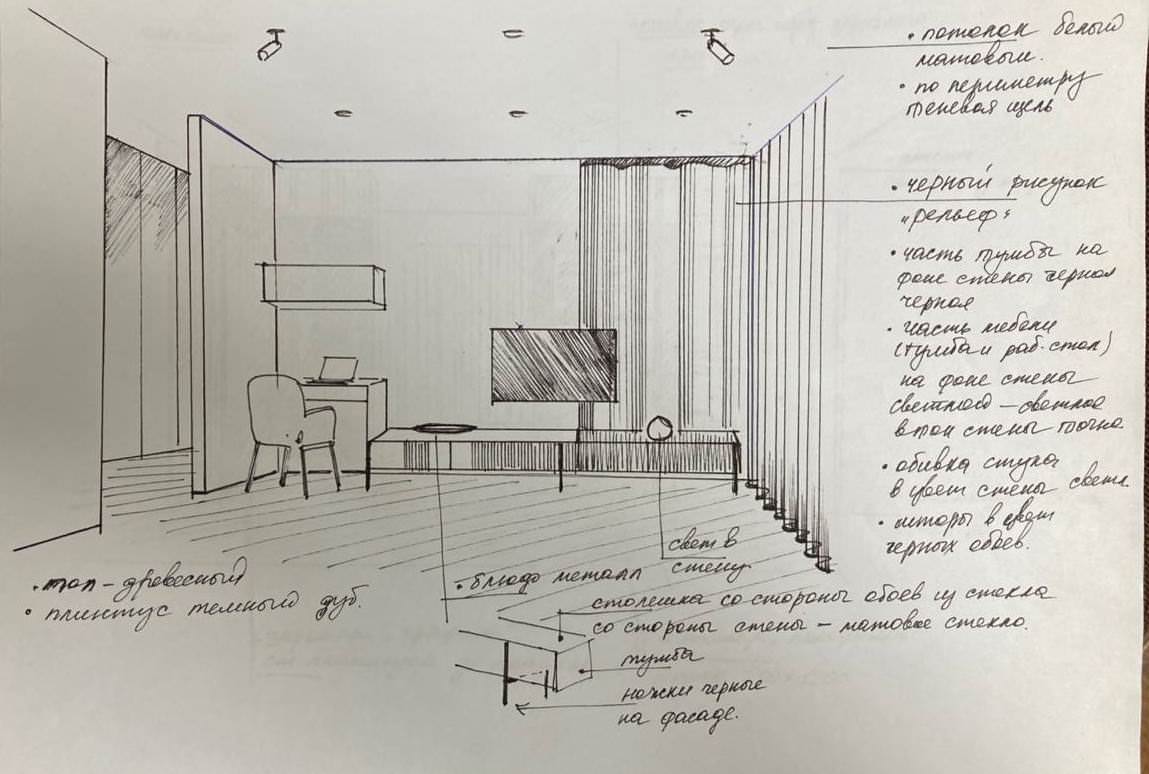 • потолок белый
матовый.
• по периметру
теневая щель
• черный рисунок
"рельеф"
• часть тумбы на
фоне стены черная
черная
• часть мебели
(тумба и раб. стол)
на фоне стены
светлой – светлое
в тон стены точно
• обивка стула
в цвет стены светл.
• шторы в цвет
черных обоев.
свет в
стену.
• блюдо металл
• пол – древесный
• плинтус темный дуб.
столешка со стороны обоев из стекла
со стороны стены – матовое стекло.
тумба
ножки черные
на фасаде.